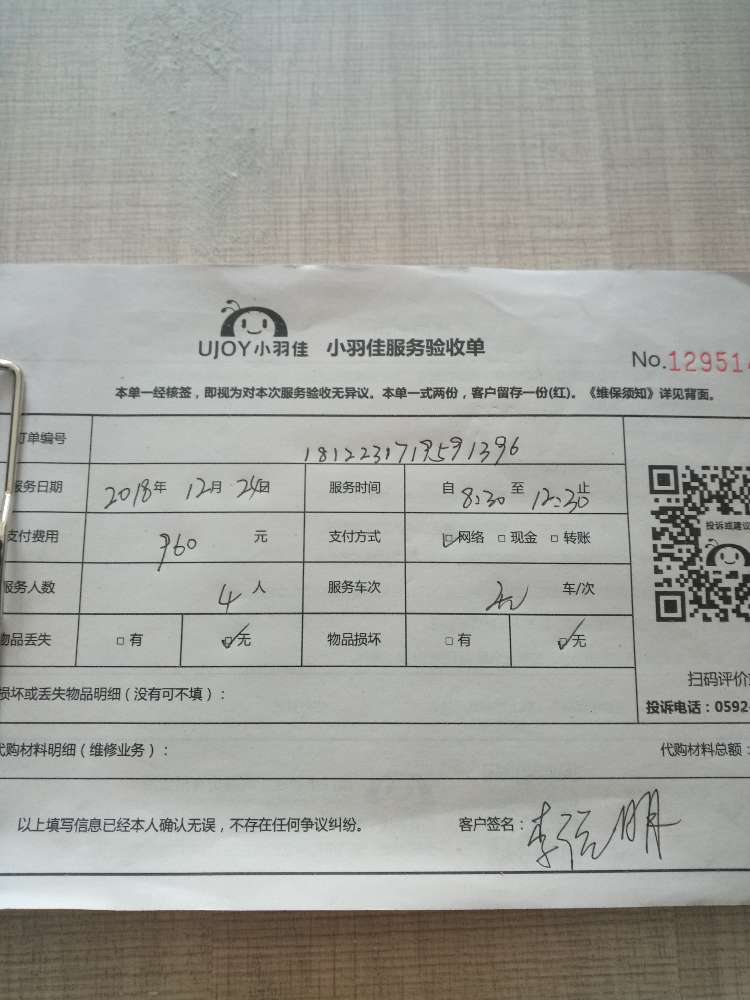 UJOY小羽佳 小羽佳服务验收单
No.12951
本单一经核签，即视为对本次服务验收无异议。本单一式两份，客户留存一份(红)。《维保须知》详见背面。
订单编号 1812231719591396
服务日期 2018年 12月 24日 服务时间 自 8:30 至 12:30 止
支付费用 960 元 支付方式 ☑网络 □现金 □转账
服务人数 4 人 服务车次 车/次
物品丢失 □有 ☑无 物品损坏 □有 ☑无
投诉或建议
扫码评价
投诉电话：0592-
损坏或丢失物品明细（没有可不填）：
代购材料明细（维修业务）： 代购材料总额：
以上填写信息已经本人确认无误，不存在任何争议纠纷。 客户签名：